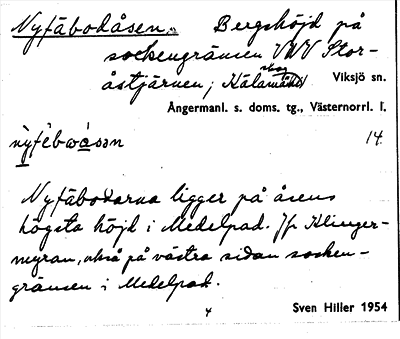 Nyfäbodåsen. Bergshöjd på
sockengränsen VNV Stor-
åstjärnen; Kälamårk Viksjö sn.
Ångermanl. s. doms. tg., Västernorrl. l.
nỳfèbwåsən 14.
Nyfäbodarna ligger på åsens
högsta höjd i Medelpad. Jfr Klinger-
myran, också på västra sidan socken-
gränsen i Medelpad.
4 Sven Hiller 1954